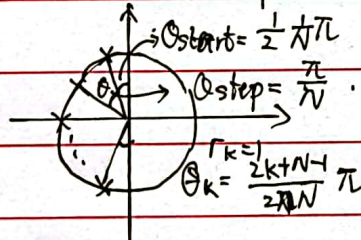 θstart = 1/2 1/N π
θ
θstep = π/N .
r_K = 1
θ_K = (2K+N-1)/(2N) π